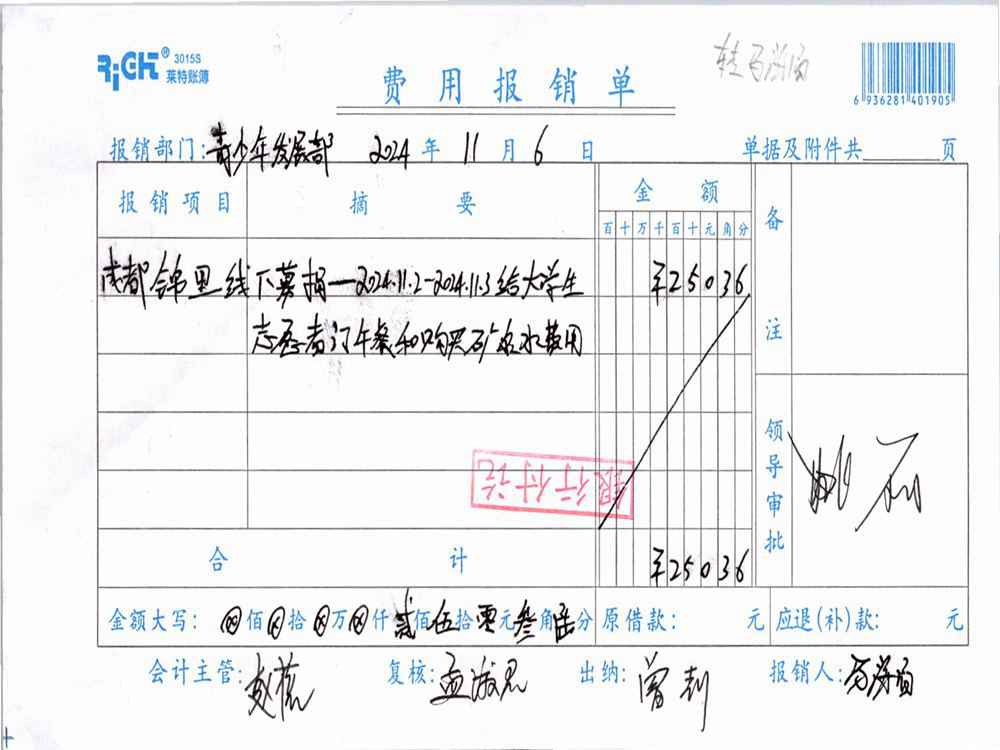 RiCHT® 3015S
莱特账簿
费用报销单
6 936281 401905
报销部门:青少年发展部 2024年11月6日 单据及附件共 页
报销项目 摘要 金额 备注
百十万千百十元角分
成都锦里线下募捐—2024.11.2-2024.11.3给大学生 ¥25036
志愿者订午餐和购买矿泉水费用
银行付讫
领导审批
合计 ¥25036
金额大写: ⊗佰⊗拾⊗万⊗仟贰佰伍拾零元叁角陆分 原借款: 元 应退(补)款: 元
会计主管: 复核:孟淑君 出纳:曾莉 报销人: